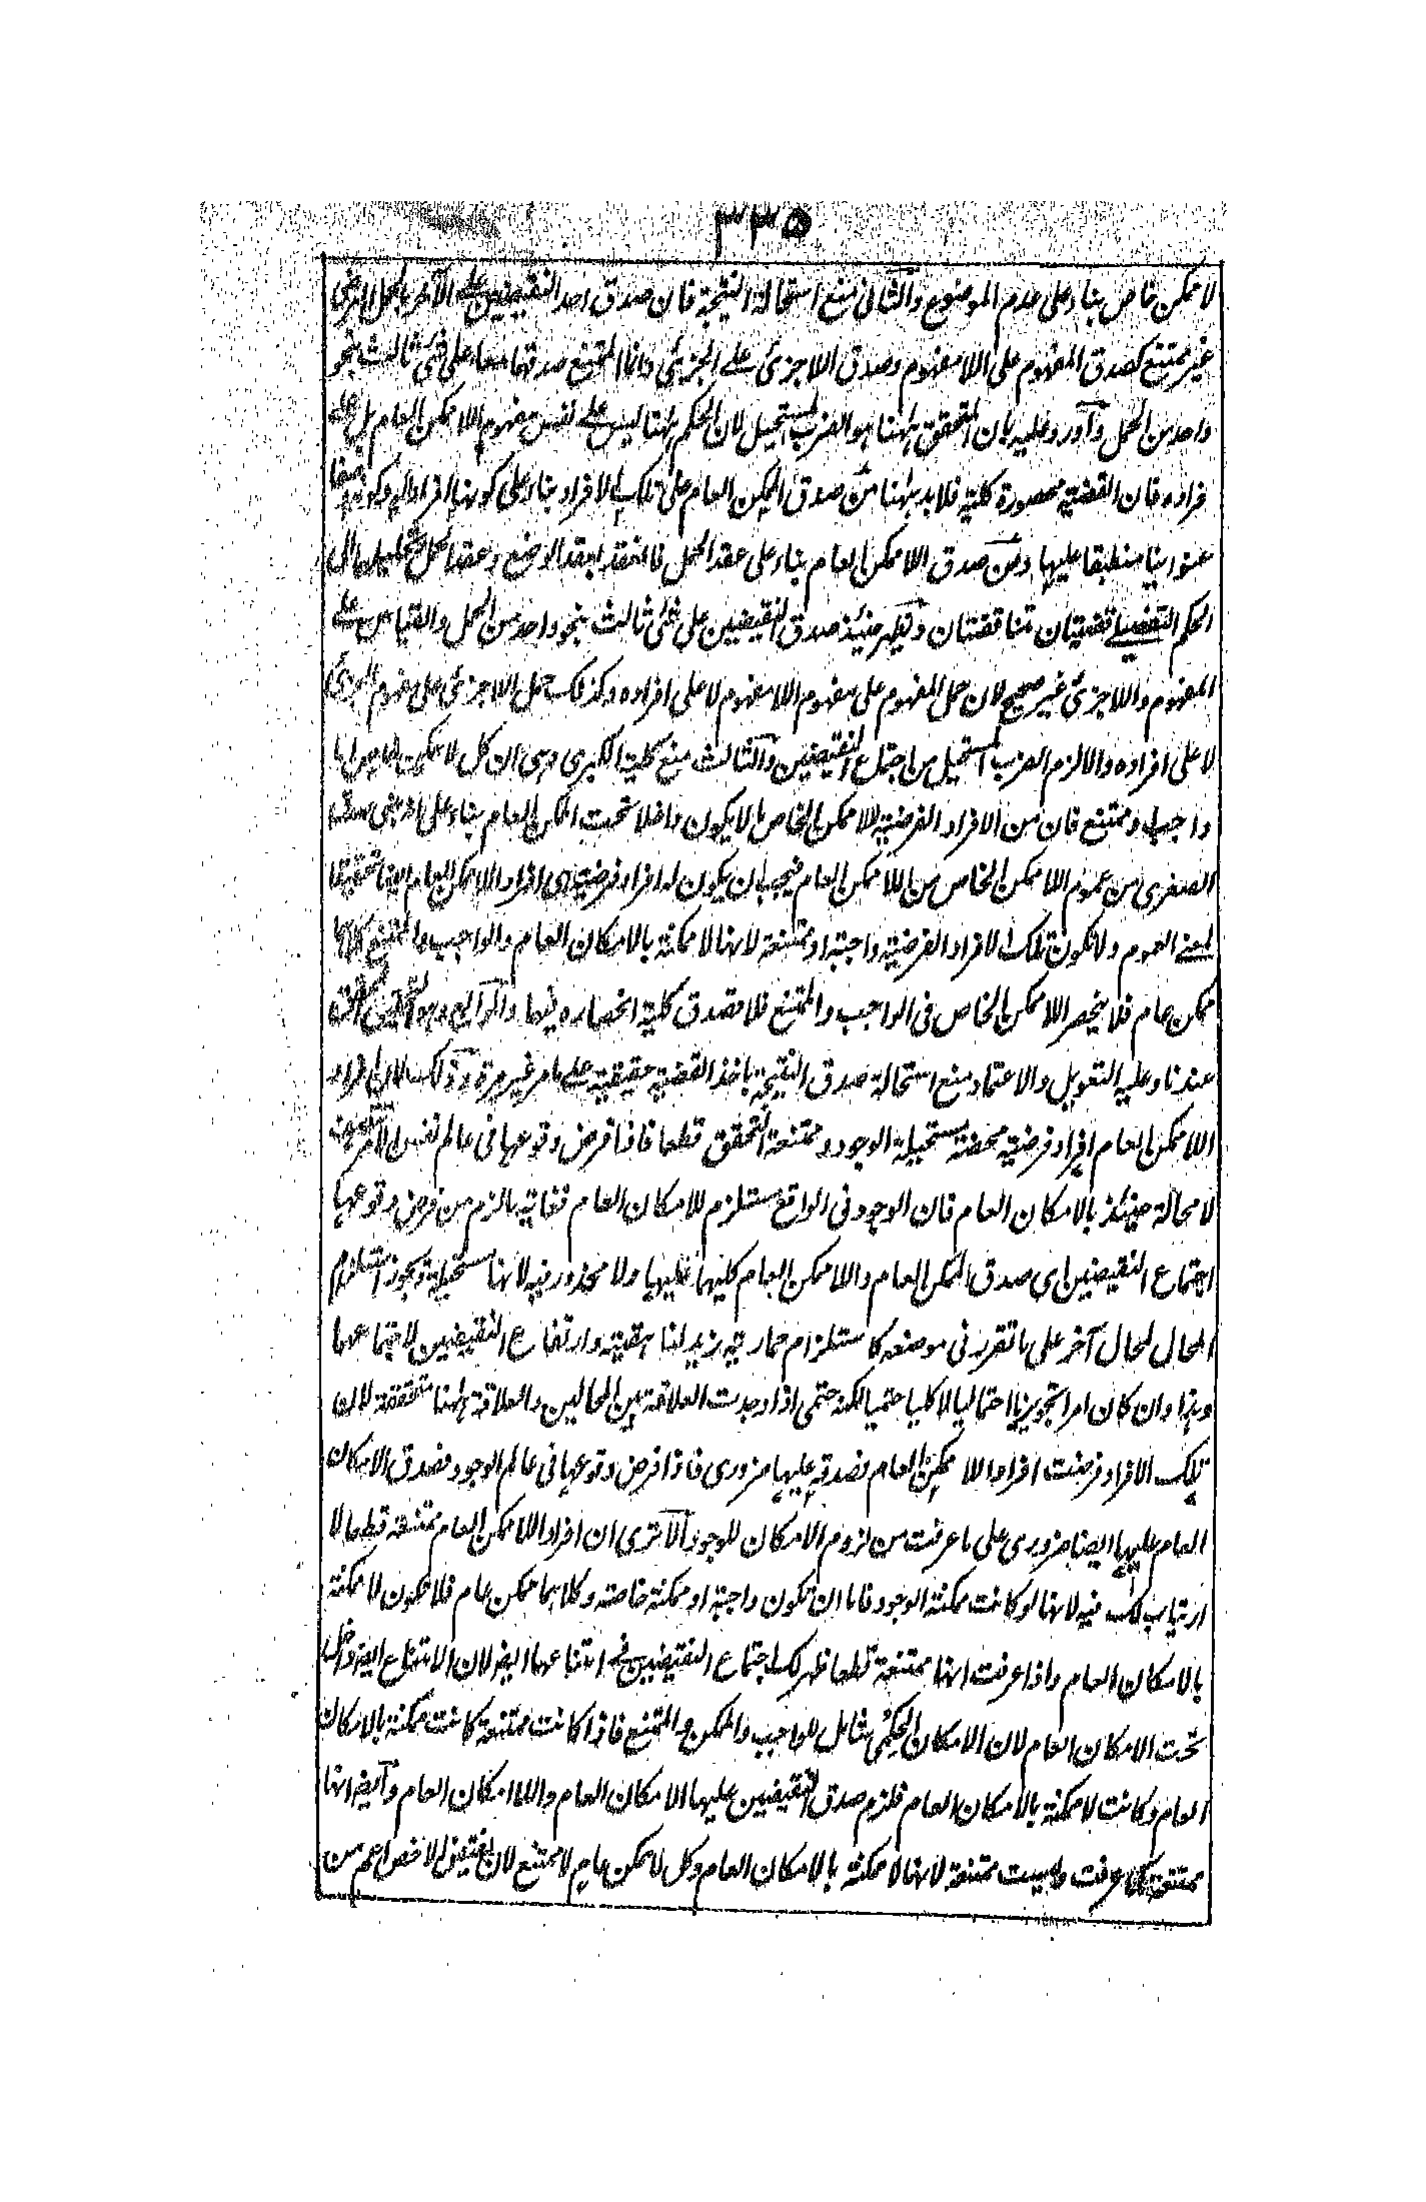 ٣٣٥
لا ممكن خاص بناء على عدم الموضوع والثانى منع استحالة النتيجة فان صدق احد النقيضين على الآخر بالحمل العرضى
غير ممتنع كصدق المفهوم على اللامفهوم وصدق اللاجزئى على الجزئى وانما الممتنع صدقهما معا على شئ ثالث بنحو
واحد من الحمل وآورد عليه بان المتحقق ههنا هو الضرب المستحيل لان الحكم ههنا ليس على نفس مفهوم اللاممكن العام بل على
افراده فان القضية محصورة كلية فلا بد ههنا من صدق الممكن العام على تلك الافراد بناء على كونها افرادا له وكونه
عنوانيا منطبقا عليها ومن صدق اللاممكن العام بناء على عقد الحمل فانعقد بعقد الوضع وعقد الحمل
الحكم التفصيلى قضيتان متناقضتان ويظهر حينئذ صدق النقيضين على شئ ثالث بنحو واحد من الحمل والقياس على
المفهوم واللاجزئى غير صحيح لان حمل المفهوم على مفهوم اللامفهوم لا على افراده وكذلك حمل اللاجزئى على مفهوم الجزئى
لا على افراده والا لزم الضرب المستحيل من اجتماع النقيضين والثالث منع كلية الكبرى وهى ان كل لا ممكن خاص اما
واجب او ممتنع فان من الافراد الفرضية للاممكن الخاص ما لا يكون داخلا تحت الممكن العام بناء على
الصغرى من عموم اللاممكن الخاص من اللاممكن العام فيجب ان يكون له افراد فرضية هى افراد اللاممكن العام ايضا تحقيقا
لمعنى العموم ولا تكون تلك الافراد الفرضية واجبة او ممتنعة لانها لا ممكنة بالامكان العام والواجب والممتنع كلاهما
ممكن عام فلا ينحصر اللاممكن الخاص فى الواجب والممتنع فلا تصدق كلية انحصاره فيهما والرابع وهو
عندنا وعليه التعويل والاعتماد منع استحالة صدق النتيجة باخذ القضية حقيقية على ما مر غير مرة وذلك لان افراد
اللاممكن العام افراد فرضية محضة مستحيلة الوجود وممتنعة التحقق قطعا فاذا فرض وقوعها فى عالم نفس الامر
لا محالة حينئذ بالامكان العام فان الوجود فى الواقع مستلزم للامكان العام فغاية ما لزم من فرض وقوعها
اجتماع النقيضين اى صدق الممكن العام واللاممكن العام كليهما عليها ولا محذور فيه لانها مستحيلة ويجوز استلزام
المحال لمحال آخر على ما تقرر فى موضعه كاستلزام حمارية زيد لناهقيته وارتفاع النقيضين لاجتماعهما
وهذا وان كان امرا تجويزيا احتماليا لا كليا حتميا لكنه حتمى اذا وجدت العلاقة بين المحالين والعلاقة ههنا متحققة لان
تلك الافراد فرضت افراد اللا ممكن العام فصدقه عليها ضرورى فاذا فرض وقوعها فى عالم الوجود فصدق الامكان
العام عليها ايضا ضرورى على ما عرفت من لزوم الامكان للوجود الا ترى ان افراد اللاممكن العام ممتنعة قطعا لا
ارتياب لك فيه لانها لو كانت ممكنة الوجود فاما ان تكون واجبة او ممكنة خاصة وكلاهما ممكن عام فلا تكون لا ممكنة
بالامكان العام واذا عرفت انها ممتنعة قطعا ظهر لك اجتماع النقيضين فى امتناعها ايضا لان الامتناع ايضا داخل
تحت الامكان العام لان الامكان الحكمى شامل للواجب والممكن والممتنع فاذا كانت ممتنعة كانت ممكنة بالامكان
العام وكانت لا ممكنة بالامكان العام فلزم صدق النقيضين عليها الامكان العام واللاامكان العام وآيضا انها
ممتنعة كما عرفت وليست ممتنعة لانها لا ممكنة بالامكان العام وكل لا ممكن عام لا ممتنع لان نقيض الاخص اعم من